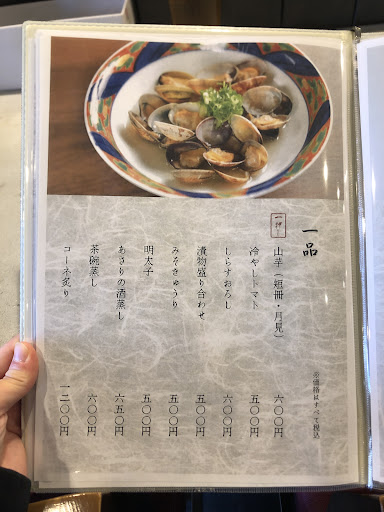 一品
一押し
山芋（短冊・月見） 六〇〇円
冷やしトマト 五〇〇円
しらすおろし 六〇〇円
漬物盛り合わせ 五〇〇円
みそきゅうり 五〇〇円
明太子 五〇〇円
あさりの酒蒸し 六五〇円
茶碗蒸し 六〇〇円
コーネ炙り 一二〇〇円
※価格はすべて税込